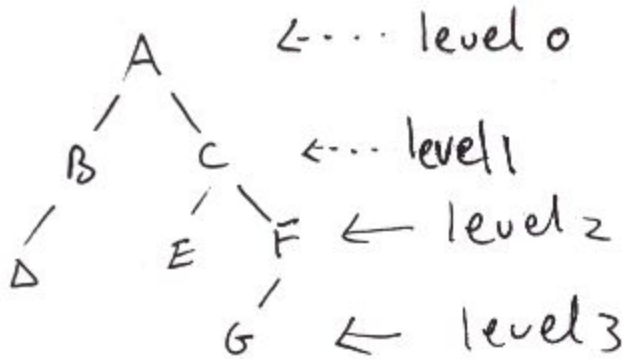 A <---- level 0
B C <---- level 1
D E F <— level 2
G <— level 3